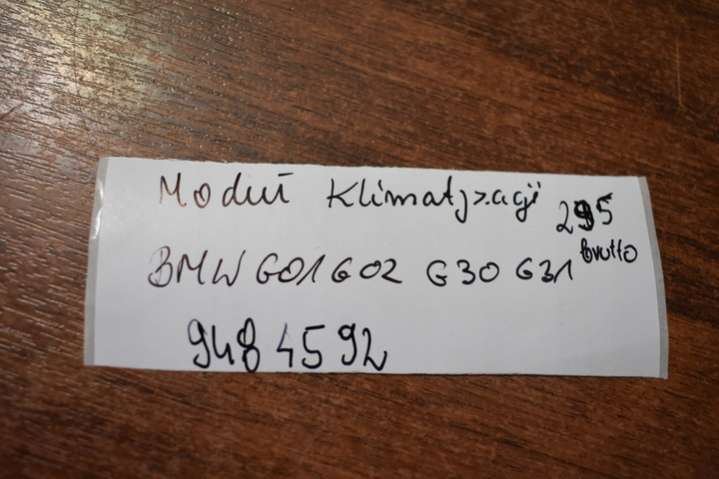 Moduł Klimatyzacji 295
brutto
BMW G01 G02 G30 G31
9484592